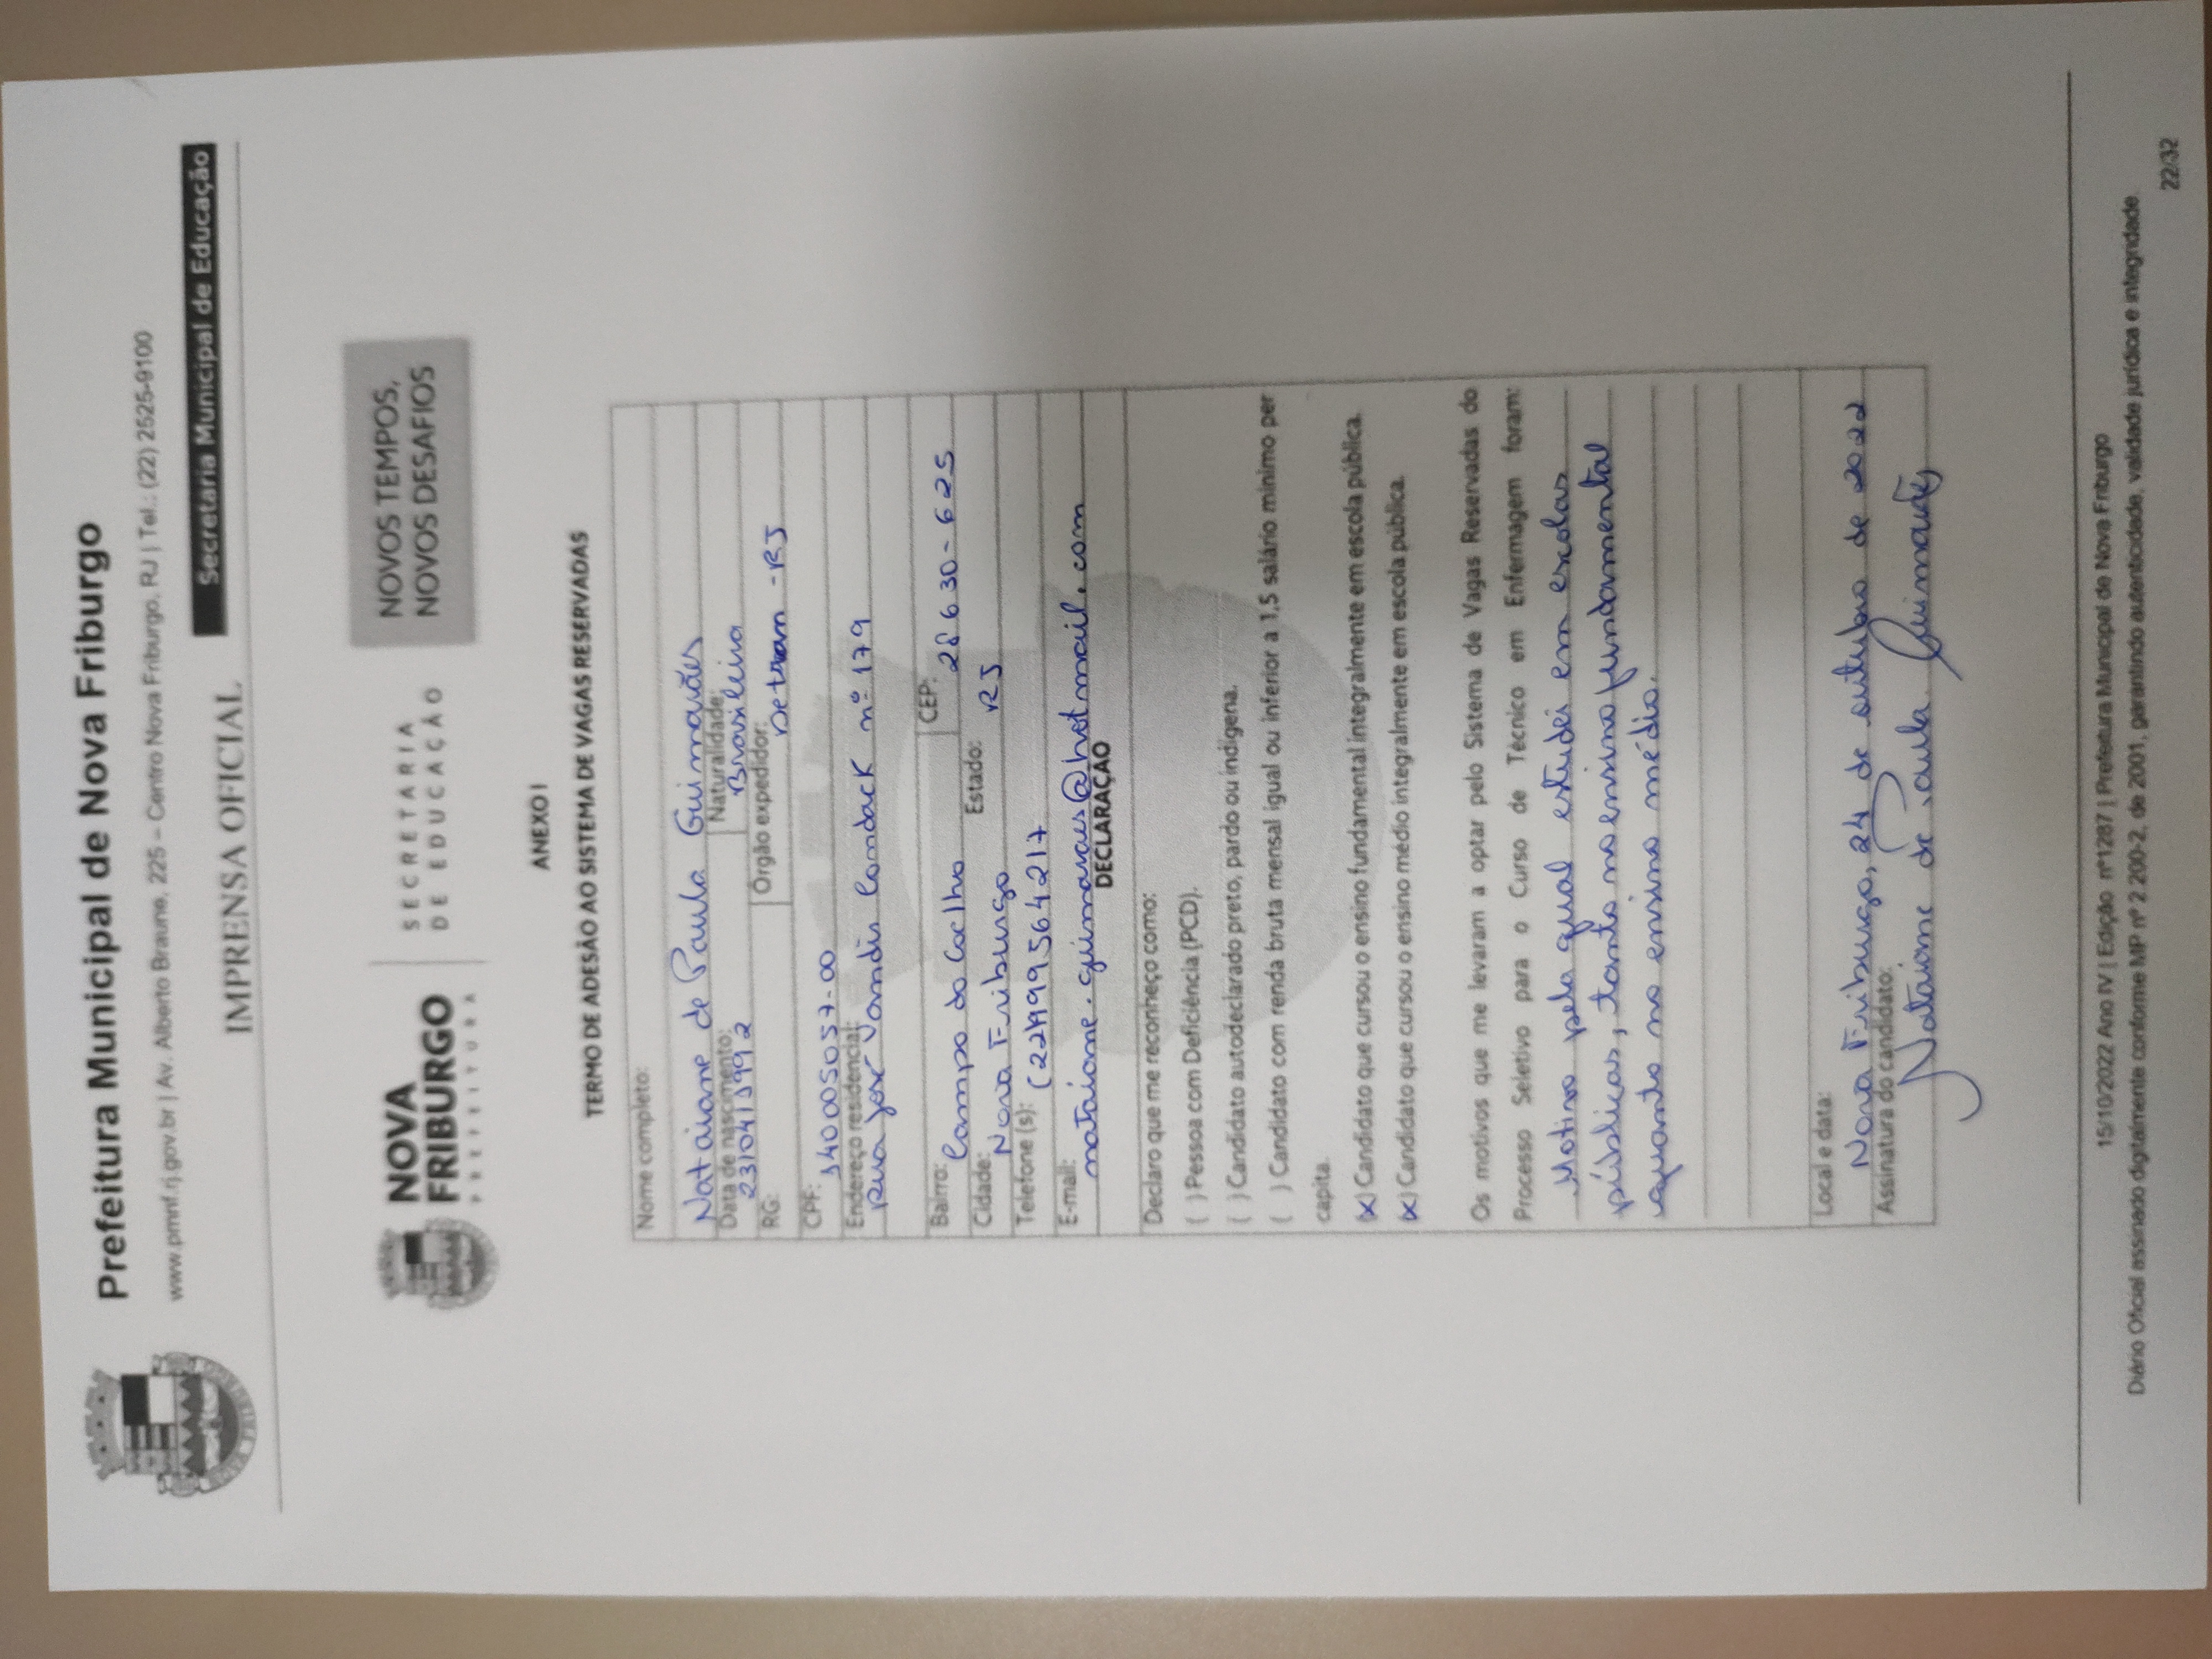 Prefeitura Municipal de Nova Friburgo
www.pmnf.rj.gov.br | Av. Alberto Braune, 225 – Centro Nova Friburgo, RJ | Tel.: (22) 2525-9100
Secretaria Municipal de Educação
IMPRENSA OFICIAL
NOVA FRIBURGO
NOVA
FRIBURGO
PREFEITURA
SECRETARIA
DE EDUCAÇÃO
NOVOS TEMPOS,
NOVOS DESAFIOS
ANEXO I
TERMO DE ADESÃO AO SISTEMA DE VAGAS RESERVADAS
Nome completo:
Nataiane de Paula Guimarães
Data de nascimento: 23/04/1992 Naturalidade: Brasileira
RG: Órgão expedidor: Detran - RJ
CPF: 140005057-00
Endereço residencial: Rua José Vandir Condack nº 179
Bairro: Campo do Coelho CEP: 28630-625
Cidade: Nova Friburgo Estado: RJ
Telefone (s): (22)999564217
E-mail: nataiane.guimaraes@hotmail.com
DECLARAÇÃO
Declaro que me reconheço como:
( ) Pessoa com Deficiência (PCD).
( ) Candidato autodeclarado preto, pardo ou indígena.
( ) Candidato com renda bruta mensal igual ou inferior a 1,5 salário mínimo per
capita.
(x) Candidato que cursou o ensino fundamental integralmente em escola pública.
(x) Candidato que cursou o ensino médio integralmente em escola pública.
Os motivos que me levaram a optar pelo Sistema de Vagas Reservadas do
Processo Seletivo para o Curso de Técnico em Enfermagem foram:
Motivo pela qual estudei em escolas
públicas, tanto no ensino fundamental
quanto no ensino médio.
Local e data:
Nova Friburgo, 24 de outubro de 2022
Assinatura do candidato:
Nataiane de Paula Guimarães
15/10/2022 Ano IV | Edição nº1287 | Prefeitura Municipal de Nova Friburgo
Diário Oficial assinado digitalmente conforme MP nº 2.200-2, de 2001, garantindo autenticidade, validade jurídica e integridade.
22/32